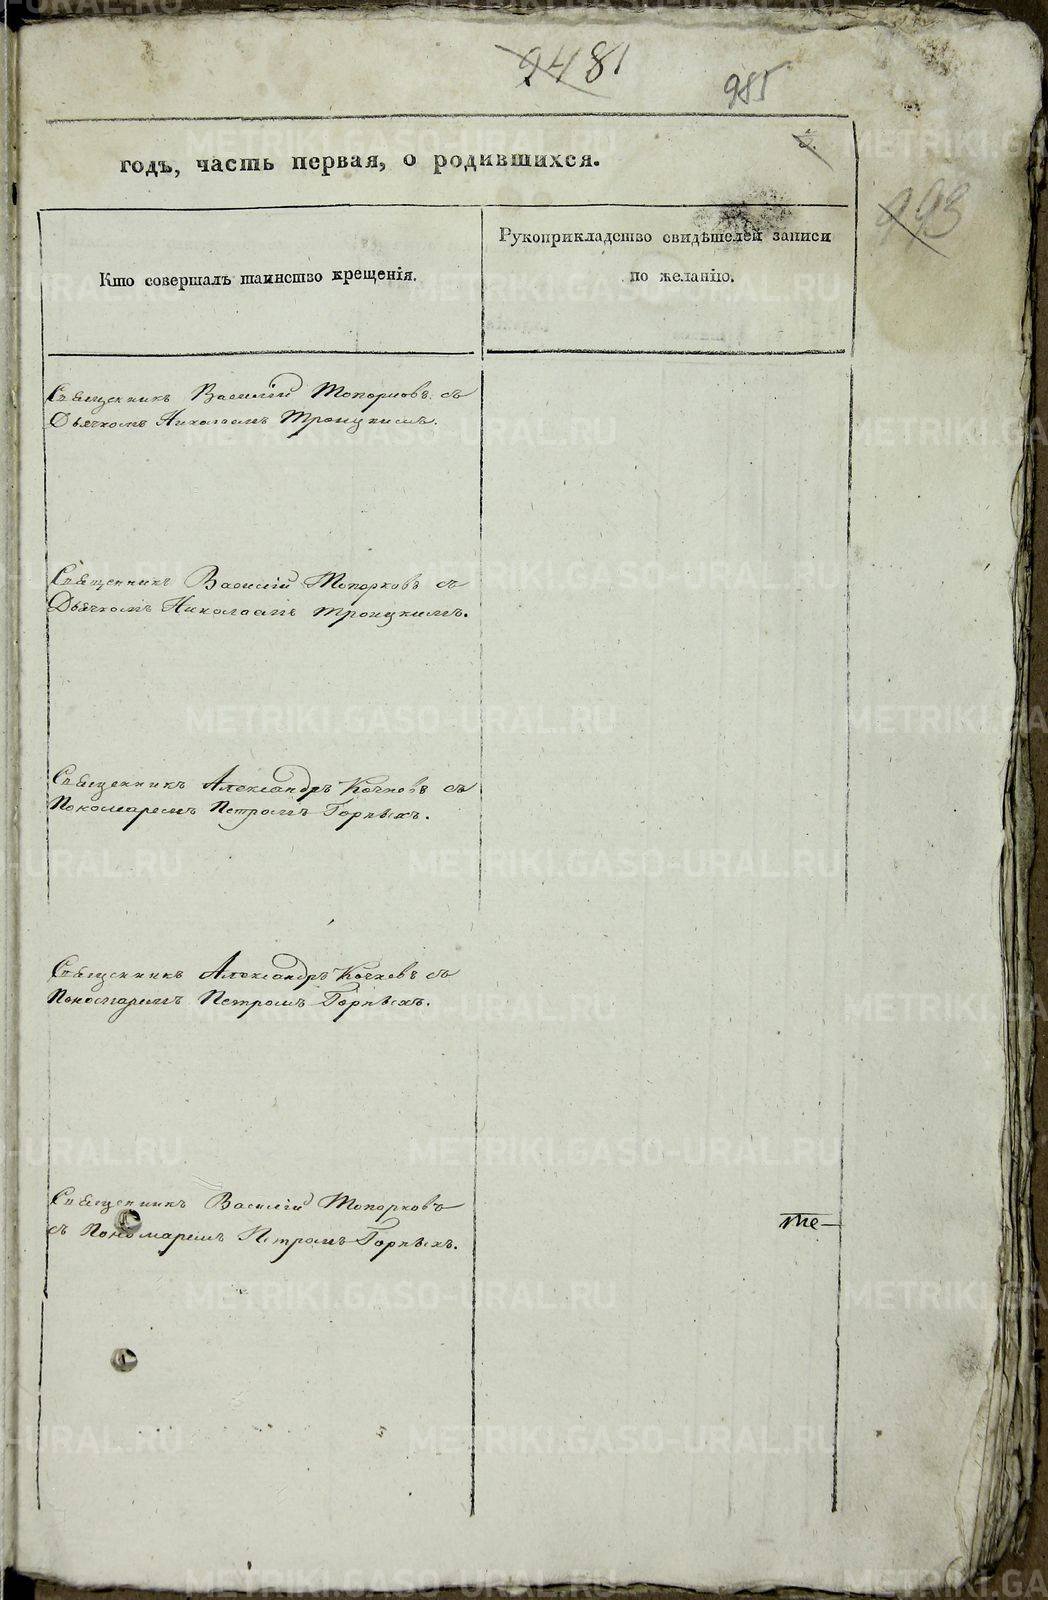 985
годъ, часть первая, о родившихся.
Кто совершалъ таинство крещенія.
Рукоприкладство свидѣтелей записи
по желанію.
Священникъ Василій Топорковъ съ
Дьячкомъ Николаемъ Троицкимъ.
Священникъ Василій Топорковъ съ
Дьячкомъ Николаемъ Троицкимъ.
Священникъ Александръ Кочневъ съ
Пономаремъ Петромъ Горныхъ.
Священникъ Александръ Кочневъ съ
Пономаремъ Петромъ Горныхъ.
Священникъ Василій Топорковъ
съ Пономаремъ Петромъ Горныхъ.
те-
METRIKI.GASO-URAL.RU